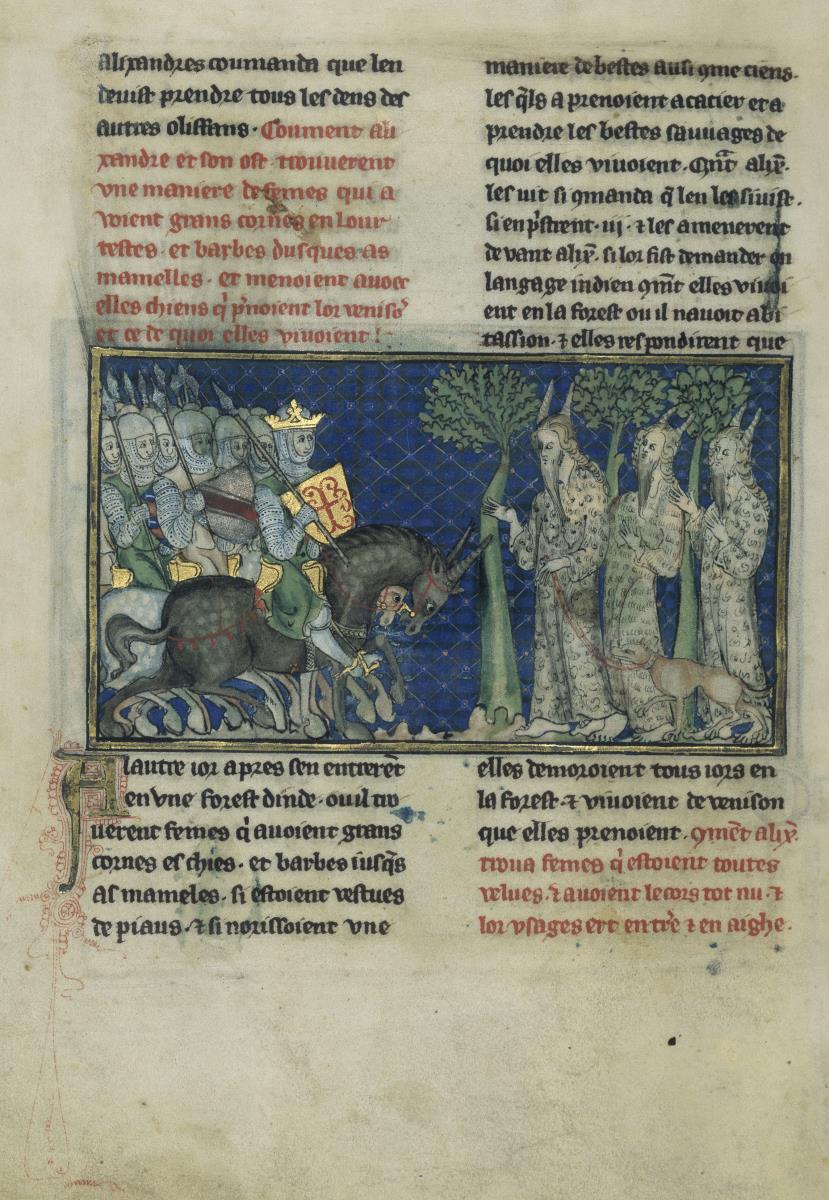 alixandres coumanda que len
deuist prendre tous les dens des
autres oliffans · Coument ali
xandre et son ost trouuerent
vne maniere de femes qui a
uoient grans cornes en lour
testes · et barbes dusques as
mameles · et menoient auoec
elles chiens q̓ p̄noient lor veniso᷒
et ce de quoi elles viuoient !·
Lautre ior apres sen entrerēt
en vne forest dinde · ou il tro
uerent femes q̓ auoient grans
cornes es chies · et barbes iusq̄s
as mameles · si estoient vestues
de piaus · ⁊ si norissoient vne
maniere de bestes ausi ꝯme ciens ·
les q̄ls aprenoient a cacier et a
prendre les bestes sauuages de
quoi elles viuoient · Qn̄t alix̄ ·
les uit si ꝯmanda q̄ len les siuist ·
si en p̓strent · iij · ⁊ les amenerent
deuant alix̄ · si lor fist demander en
langage indien ꝯm̄t elles viuoi
ent en la forest ou il nauoit abi
tassion · ⁊ elles respondirent que
elles demoroient tous iors en
la forest · ⁊ viuoient de venison
que elles prenoient · ꝯmēt alix̄ ·
troua femes q̓ estoient toutes
velues · ⁊ auoient le cors tot nu · ⁊
lor vsages ert en t̓re ⁊ en aighe ·